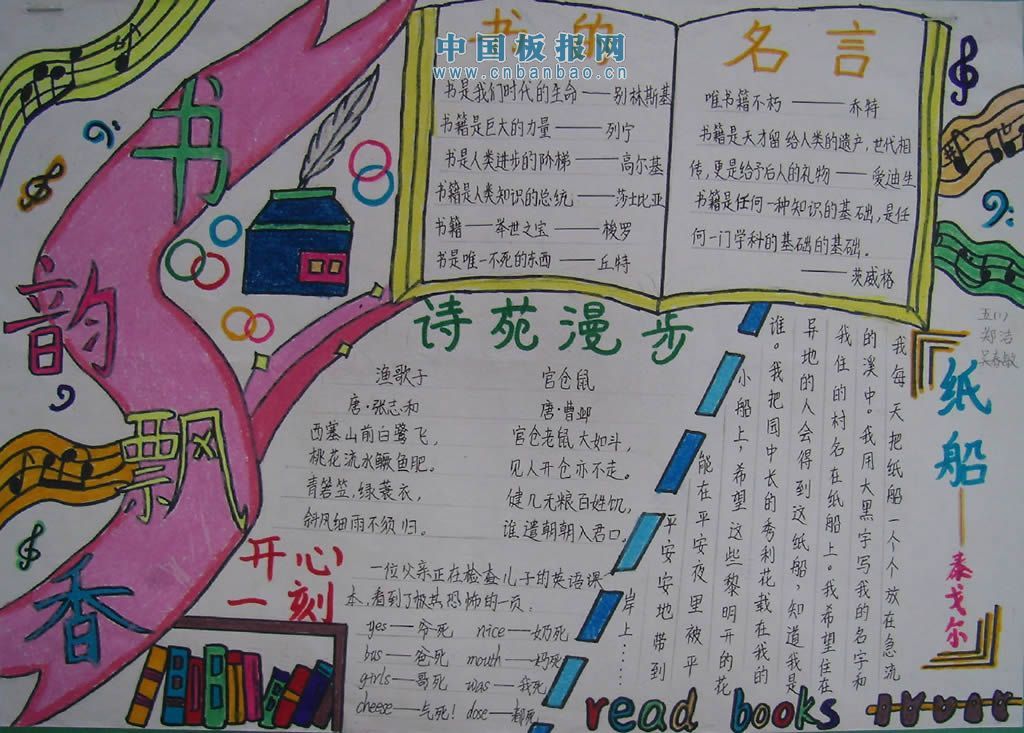 书韵飘香
中国板报网
www.cnbanbao.cn
书的
书是我们时代的生命——别林斯基
书籍是巨大的力量——列宁
书是人类进步的阶梯——高尔基
书籍是人类知识的总统——莎士比亚
书籍——举世之宝——梭罗
书是唯一不死的东西——丘特
名言
唯书籍不朽——乔特
书籍是天才留给人类的遗产,世代相
传,更是给予后人的礼物——爱迪生
书籍是任何一种知识的基础,是任
何一门学科的基础的基础。
——茨威格
诗苑漫步
渔歌子
唐·张志和
西塞山前白鹭飞,
桃花流水鳜鱼肥。
青箬笠,绿蓑衣,
斜风细雨不须归。
官仓鼠
唐·曹邺
官仓老鼠大如斗,
见人开仓亦不走。
健儿无粮百姓饥,
谁遣朝朝入君口。
开心
一刻
一位父亲正在检查儿子的英语课
本,看到了极其恐怖的一页:
yes——爷死 nice——奶死
bus——爸死 mouth——妈死
girls——哥死 was——我死
cheese——气死! dose——都死
五(1)
郑洁
吴春敏
纸船——泰戈尔
我每天把纸船一个个放在急流
的溪中。我用大黑字写我的名字和
我住的村名在纸船上。我希望住在
异地的人会得到这纸船,知道我是
谁。我把园中长的秀利花载在我的
小船上,希望这些黎明开的花
能在平安夜里被平
平安安地带到
岸上……
read books